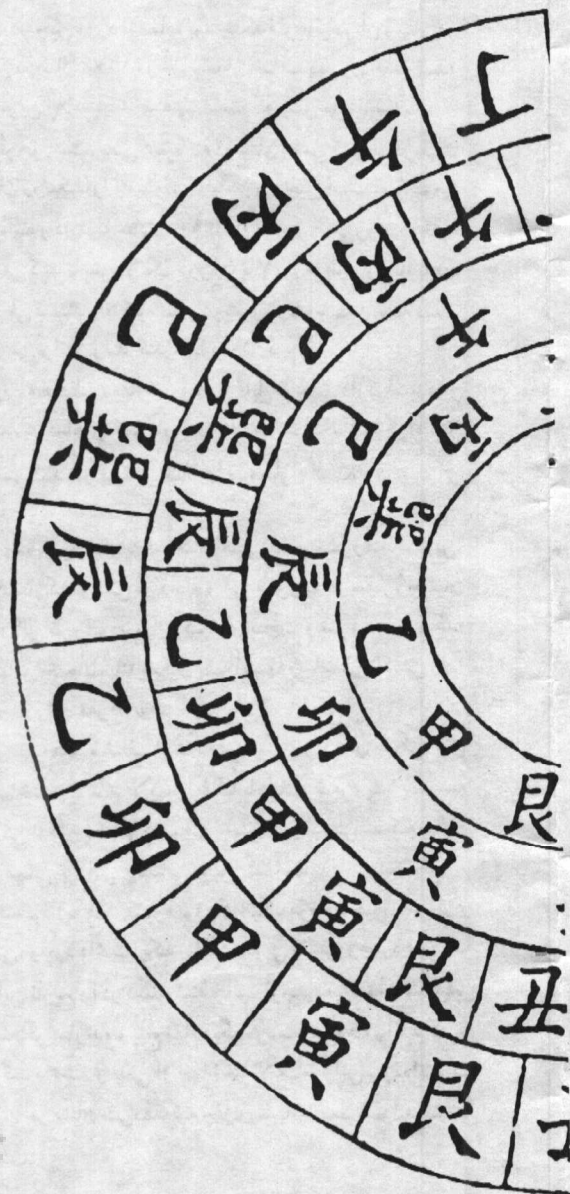 丁 午 丙 巳 巽 辰 乙 卯 甲 寅 艮
午 丙 巳 巽 辰 乙 卯 甲 寅 艮 丑
午 巳 辰 卯 寅
丙 巽 乙 甲 艮